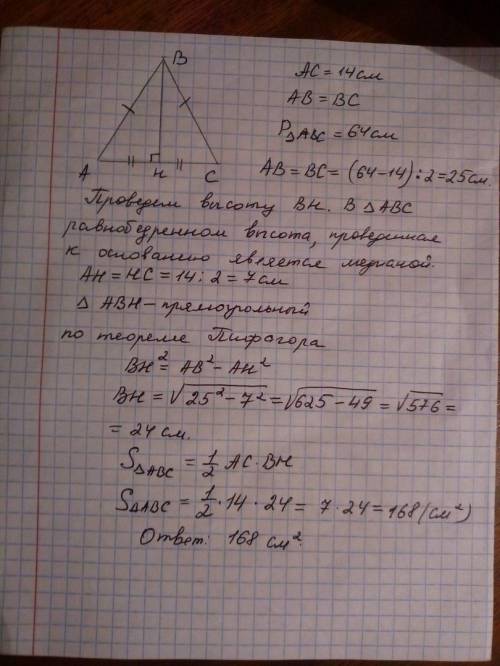 B
A
H
C
AC = 14 см
AB = BC
P△ABC = 64 см
AB = BC = (64-14):2 = 25 см.
Проведем высоту BH. В △ABC
равнобедренном высота, проведенная
к основанию является медианой.
AH = HC = 14 : 2 = 7 см
△ ABH – прямоугольный
по теореме Пифагора
BH² = AB² - AH²
BH = √25² - 7² = √625 - 49 = √576 =
= 24 см.
S△ABC = 1/2 AC · BH
S△ABC = 1/2 · 14 · 24 = 7 · 24 = 168 (см²)
Ответ: 168 см².